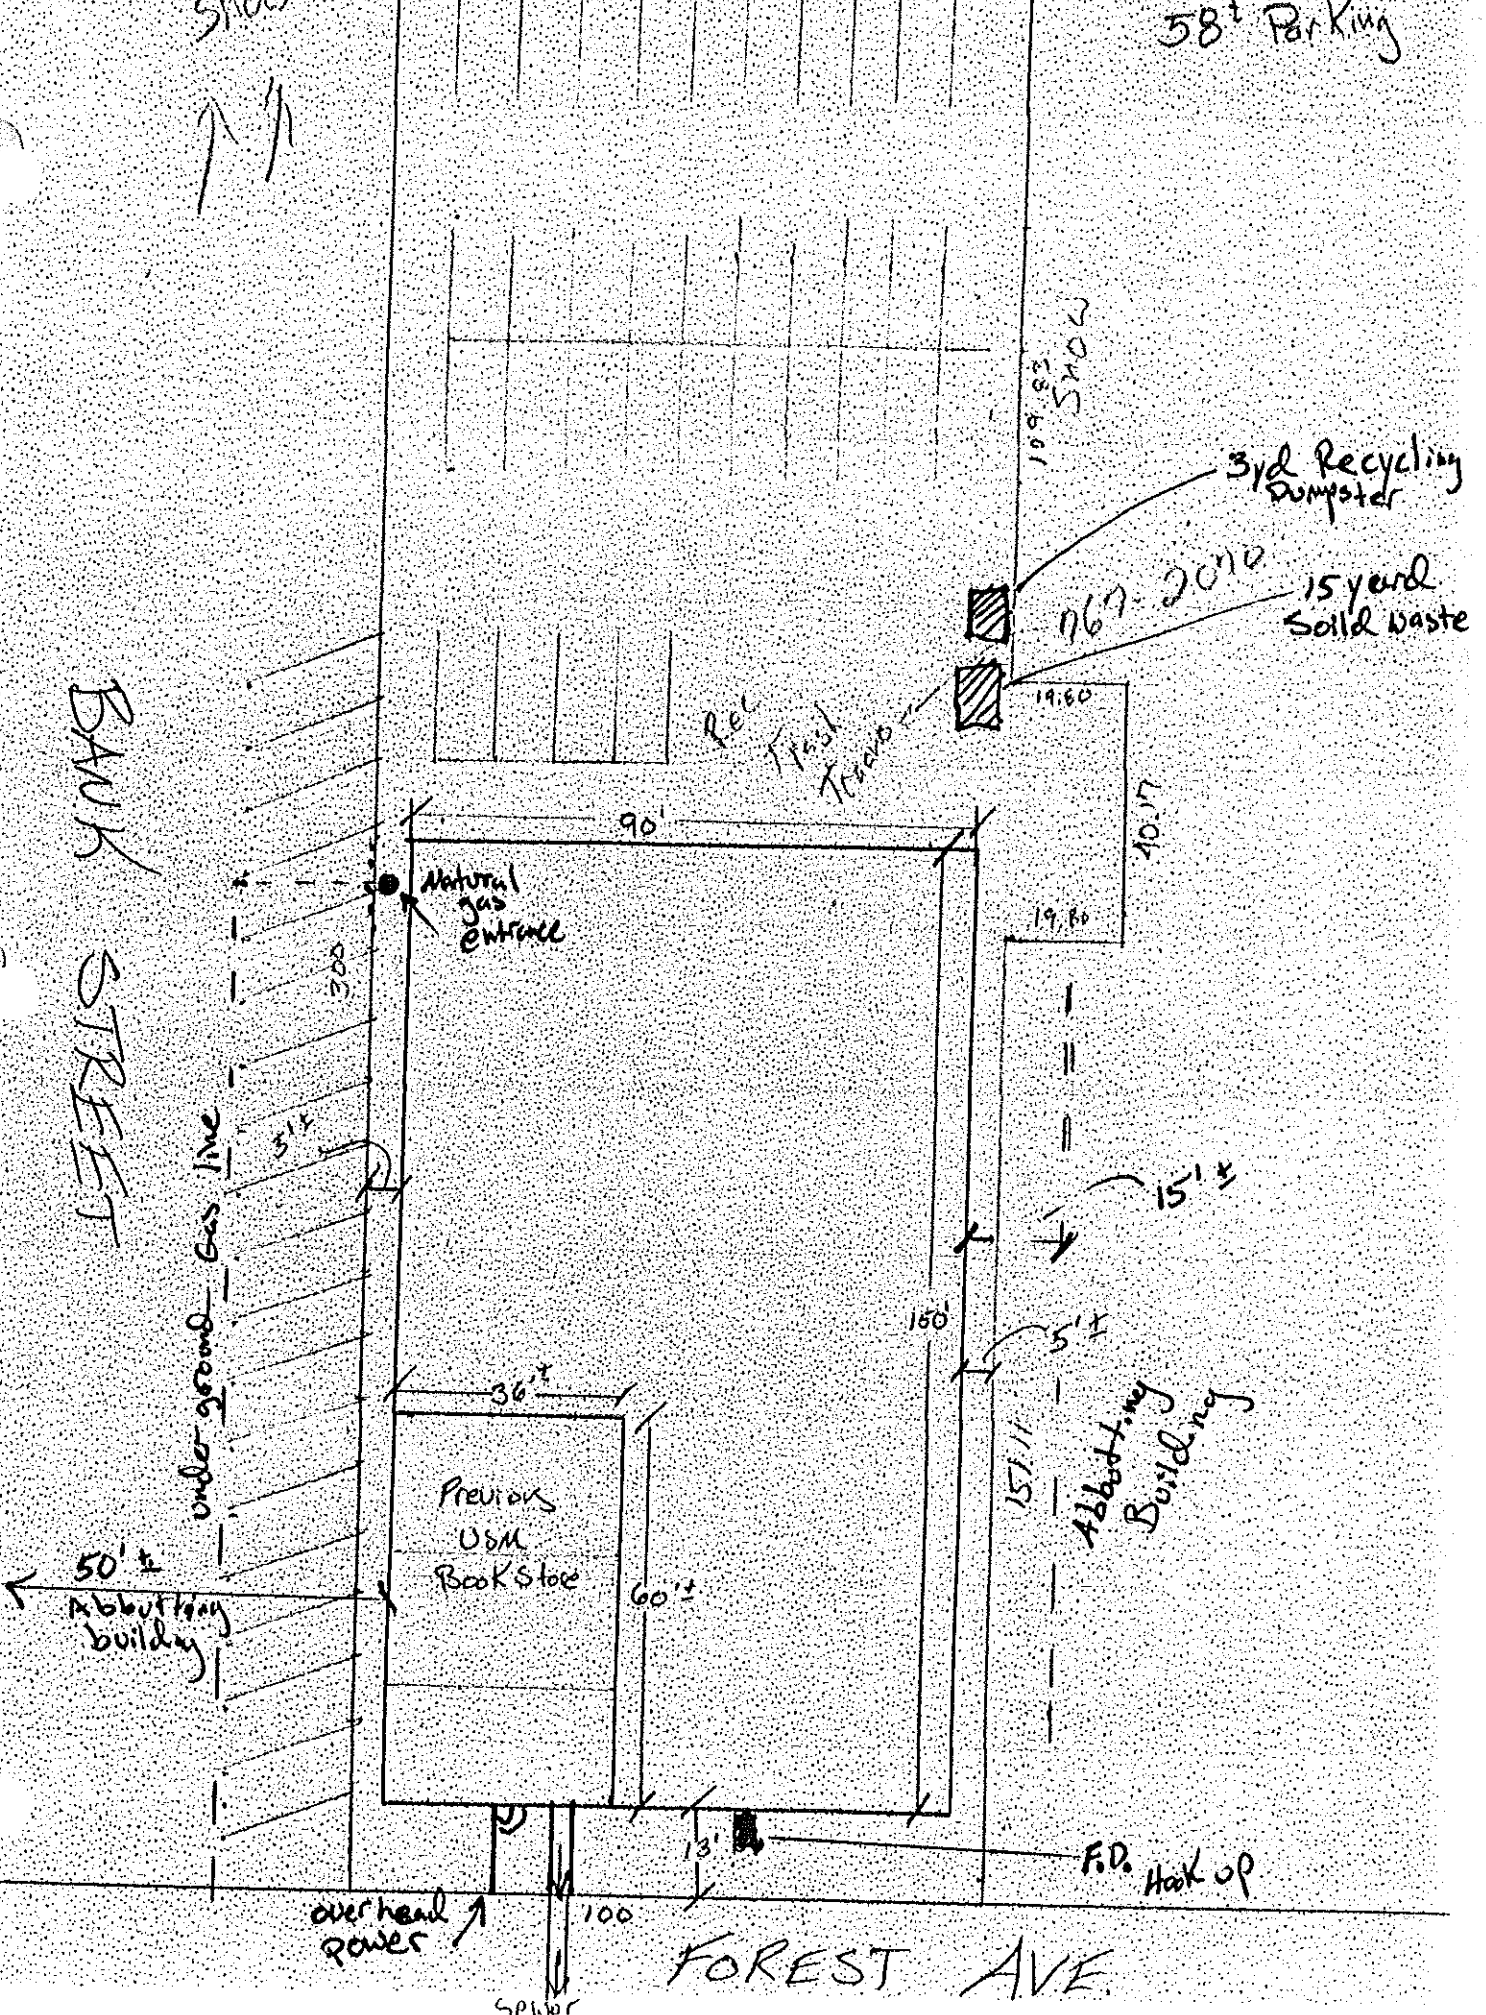 58± Parking
109.83
SNOW
3yd Recycling
Dumpster
15 yard
Soild Waste
767-2070
19.80
Rec
Trash
40.17
90'
Natural
gas
entrance
19.80
300
BANK STREET
under ground Gas line
5'±
15'±
150'
5'±
36'±
151.11
Abbutting
Building
Previous
USM
Book Store
60'±
50'±
Abbutting
building
13'
F.D. Hook up
overhead
power
100
FOREST AVE.
Sewer